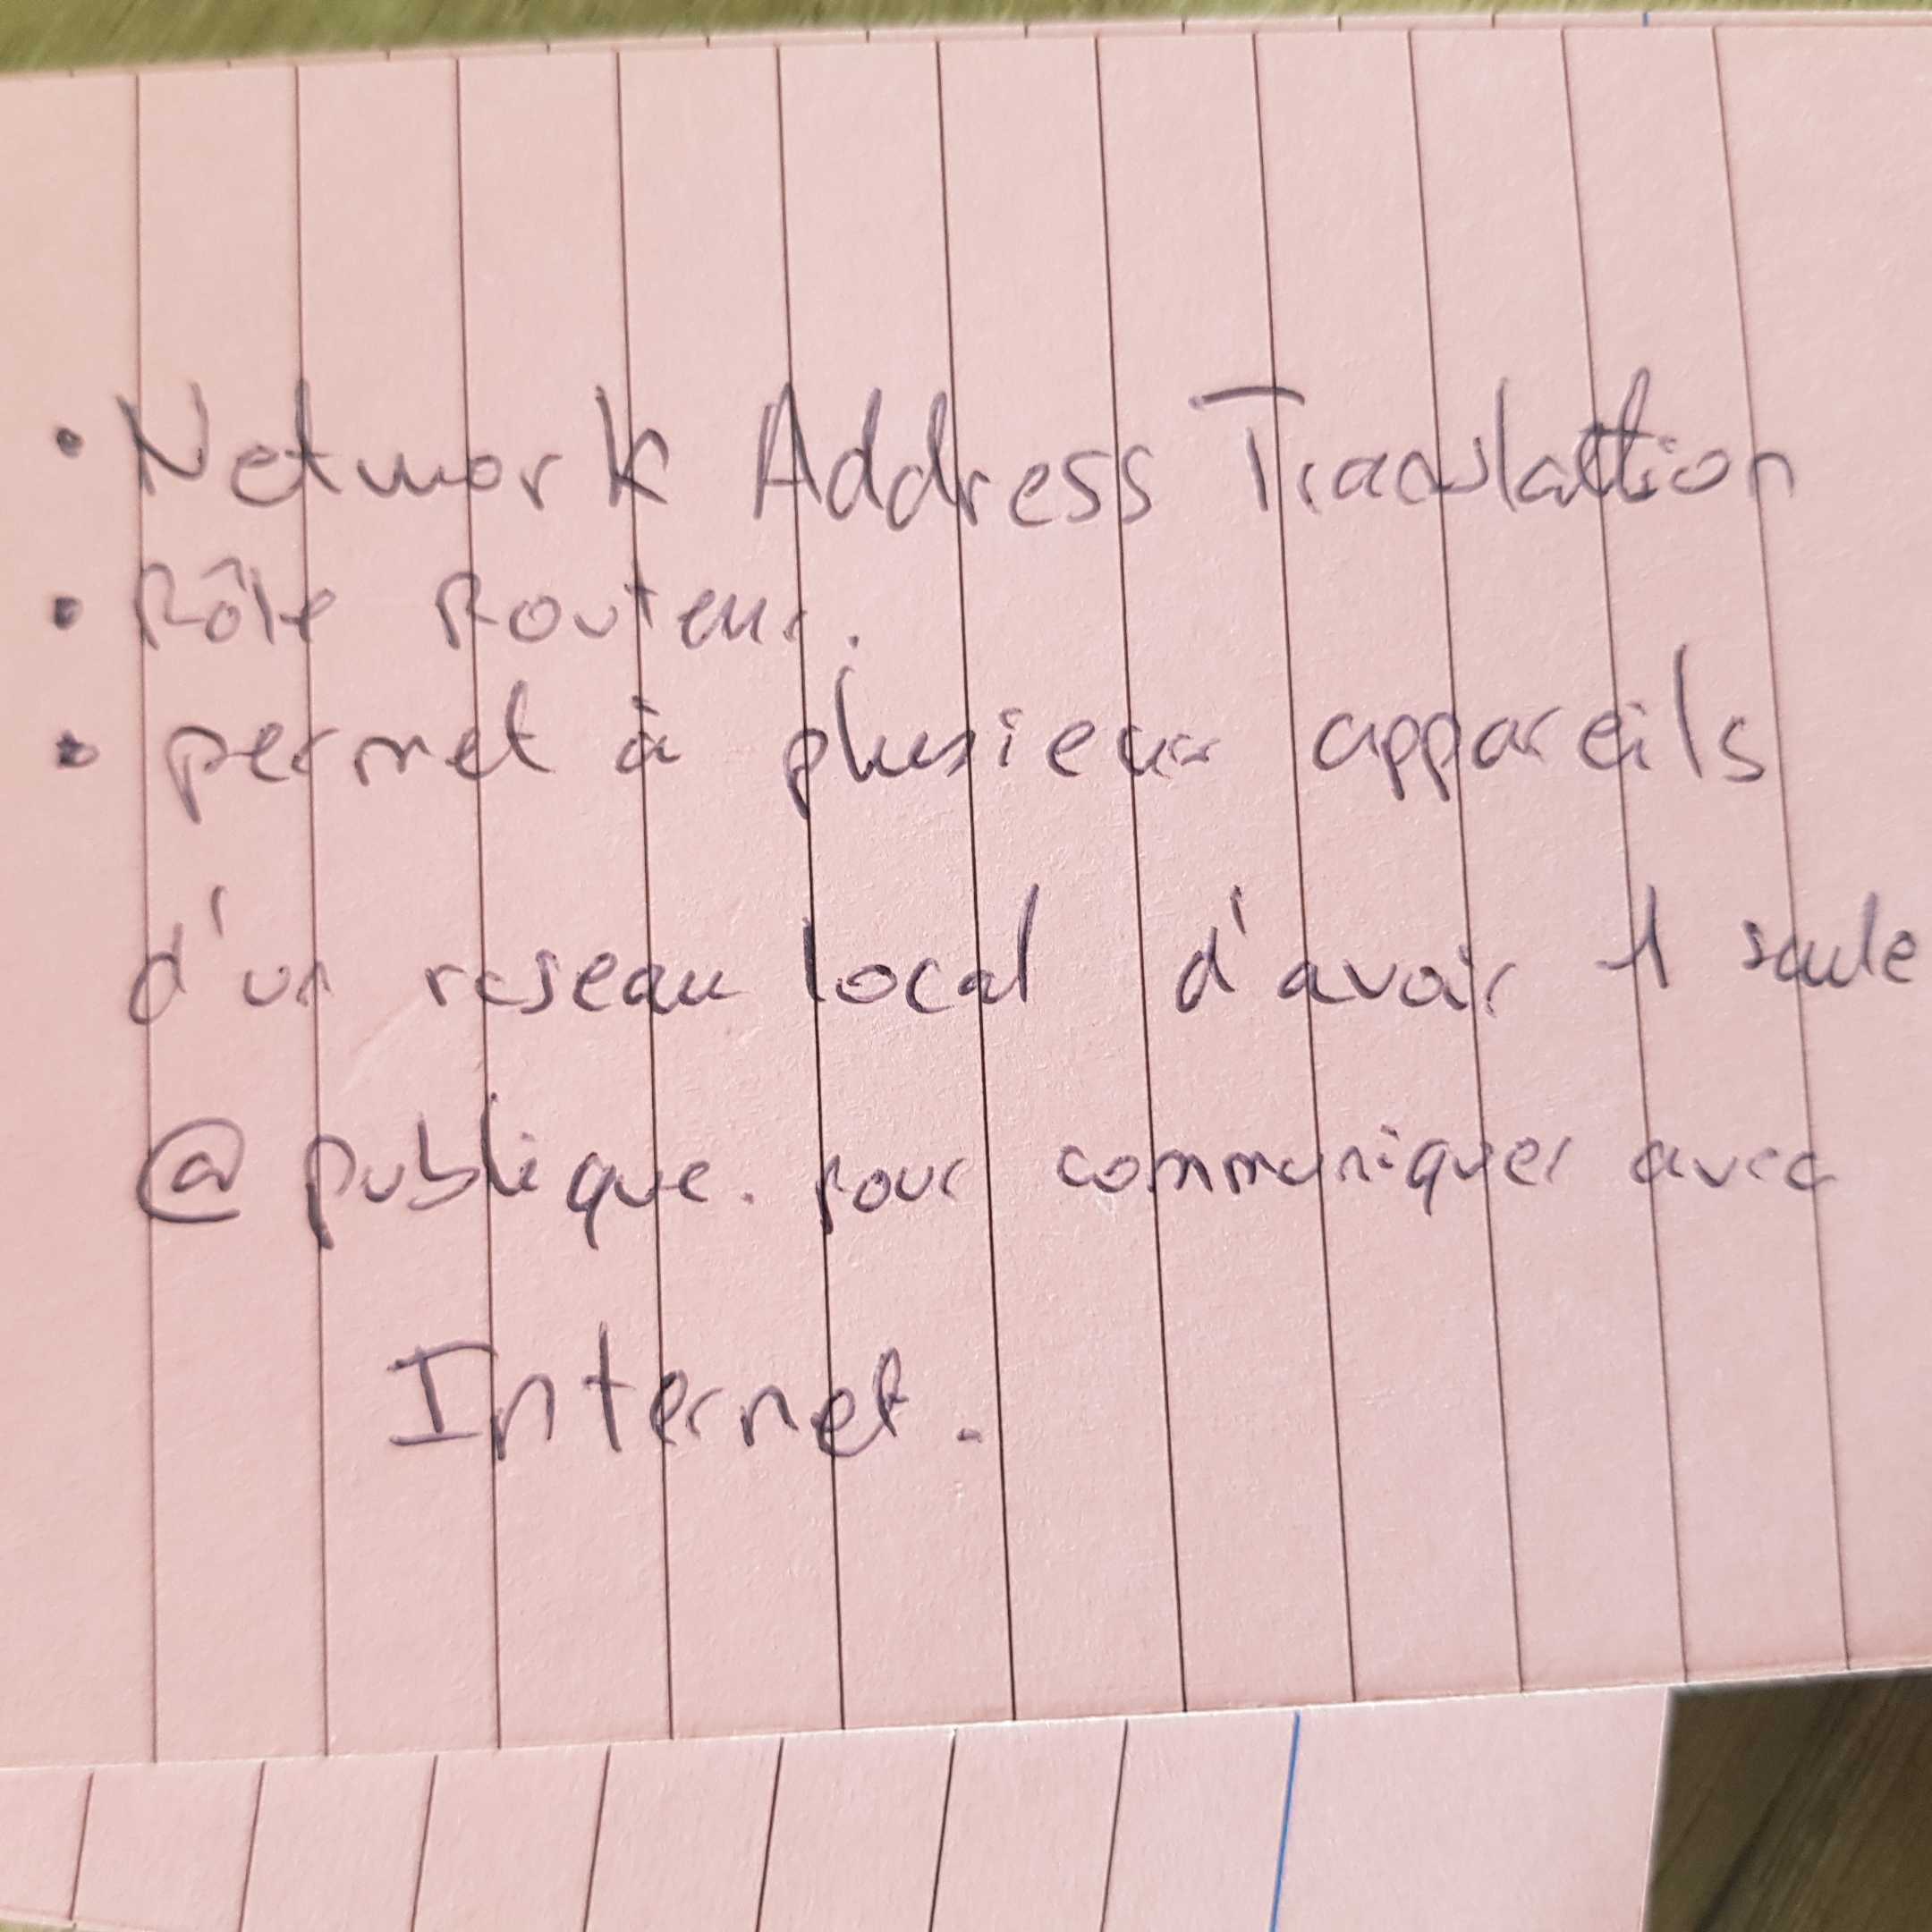 • Network Address Translattion
• Rôle Routeur.
• permet à plusieurs appareils
d'un reseau local d'avoir 1 seule
@ publique. pour communiquer avec
Internet.